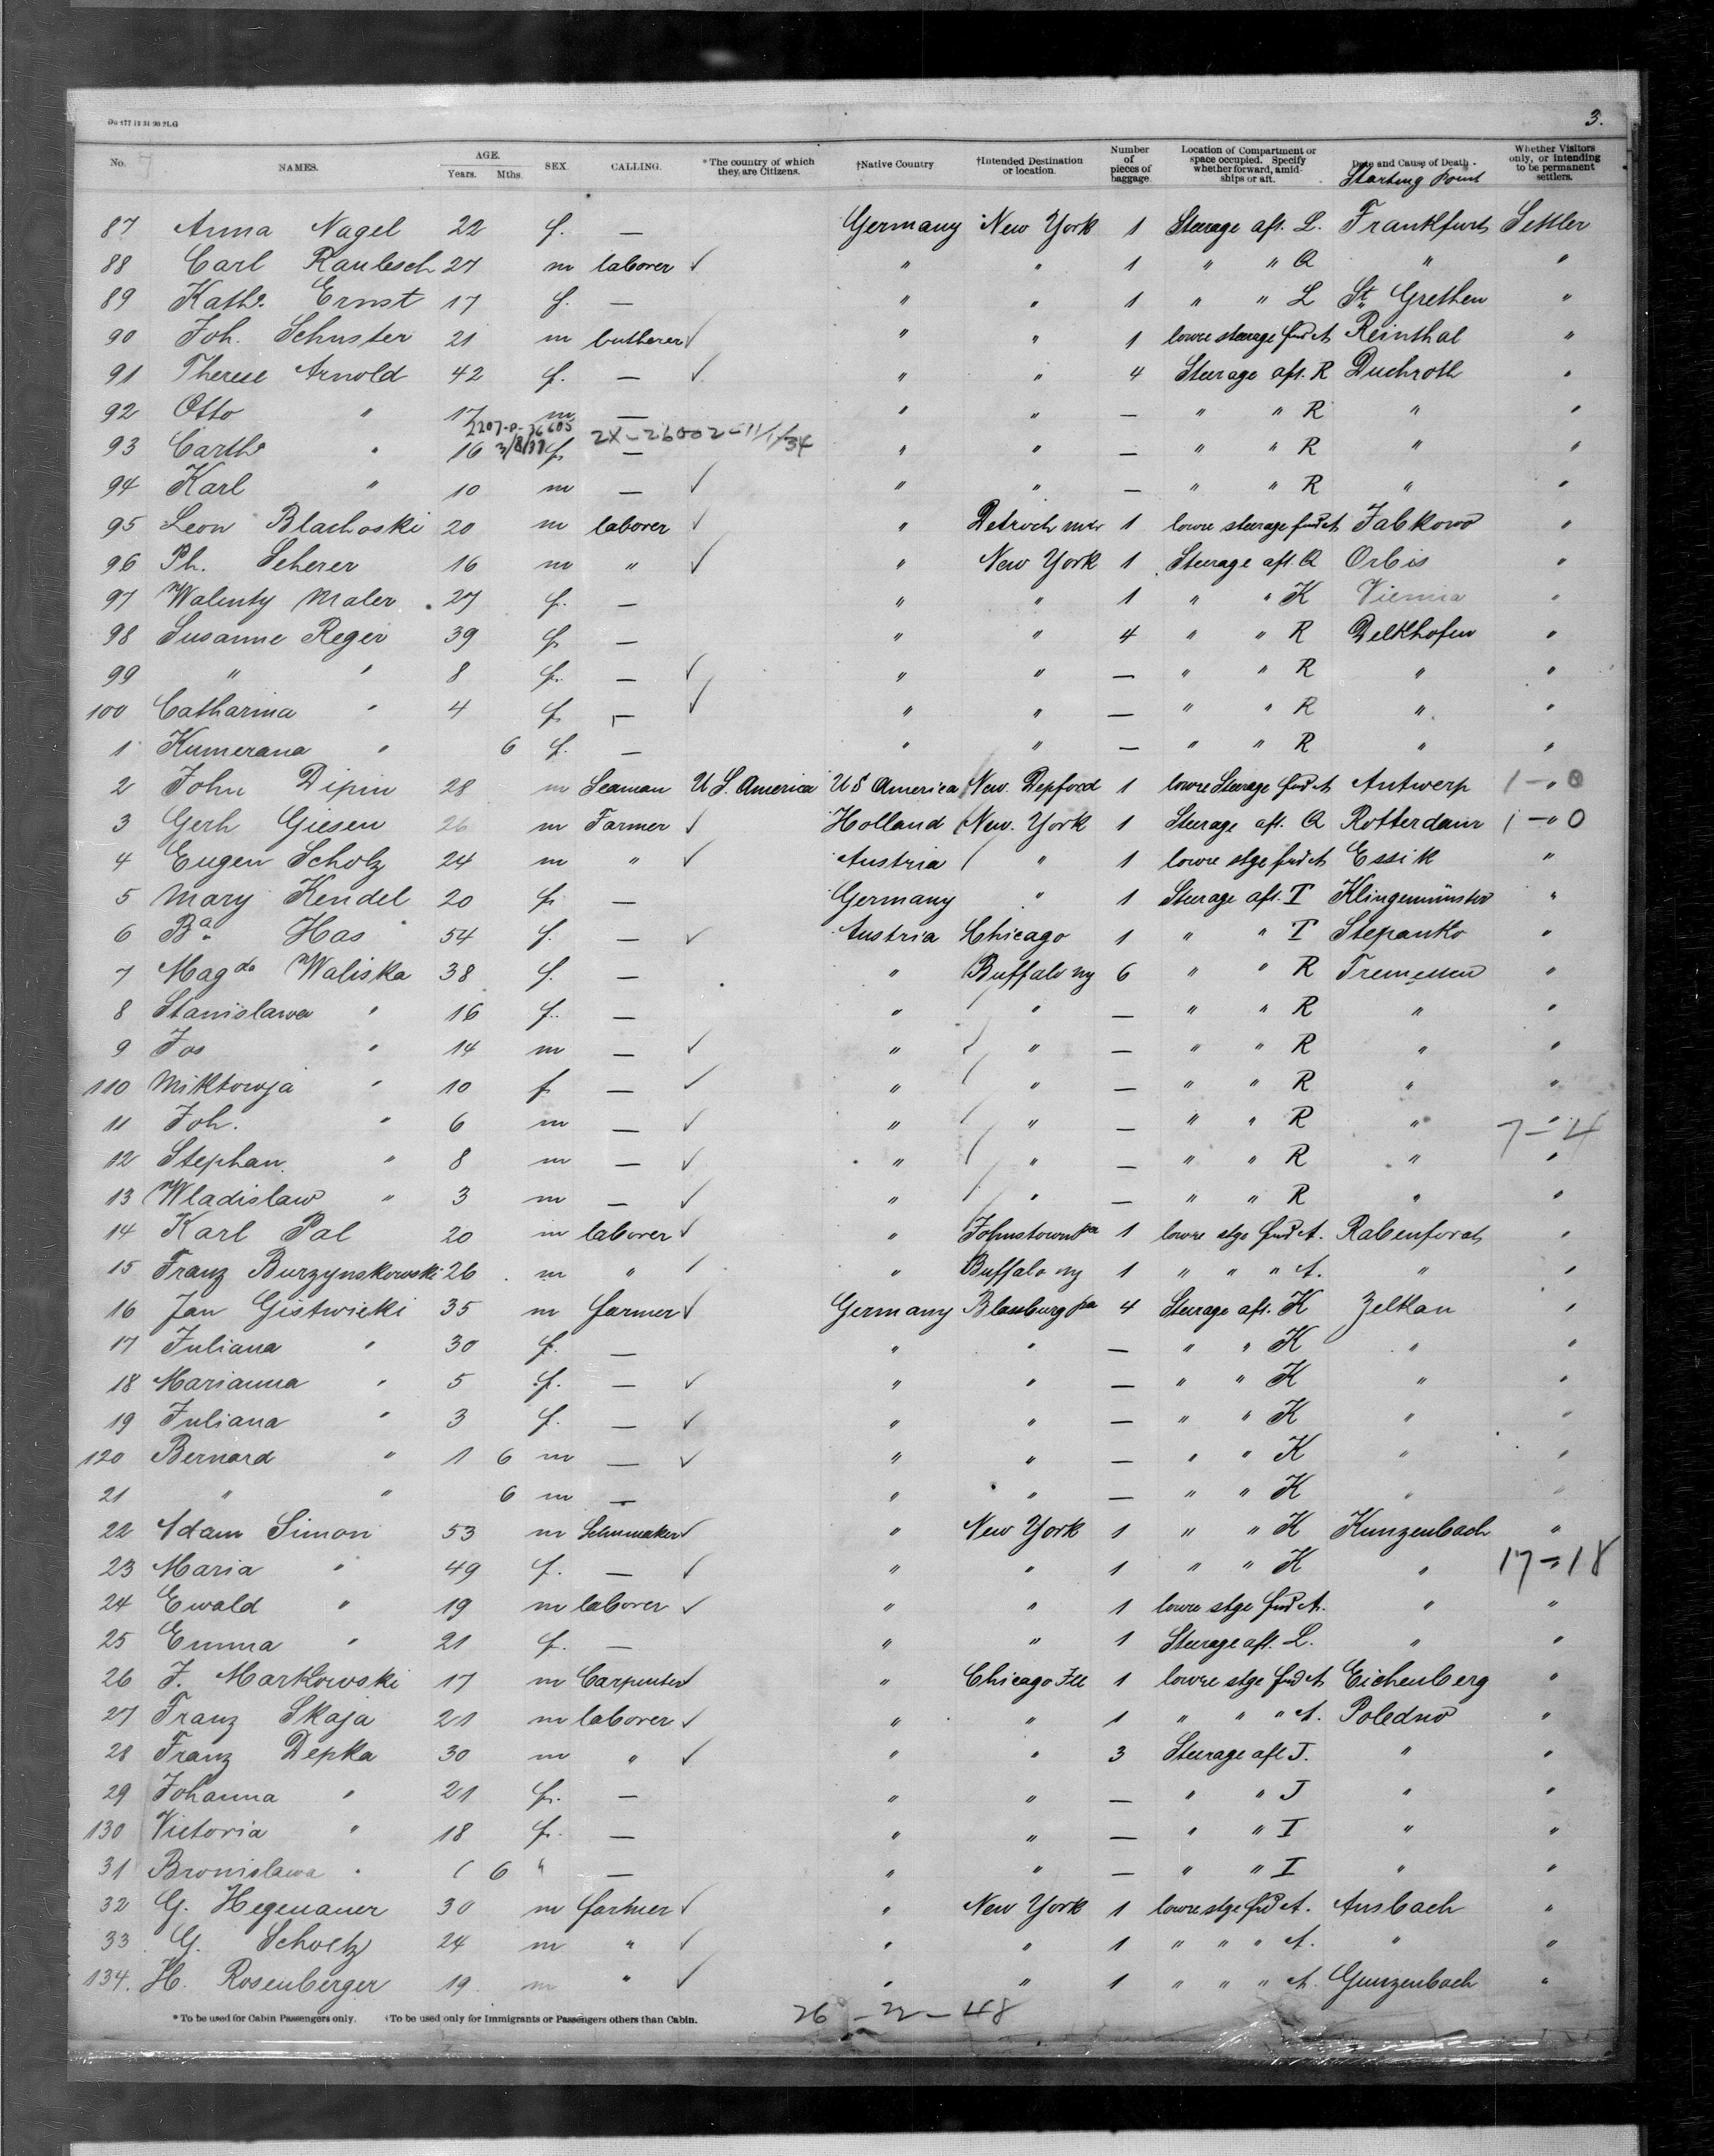 3.
No. NAMES. AGE. Years. Mths. SEX. CALLING. *The country of which they are Citizens. †Native Country †Intended Destination or location. Number of pieces of baggage Location of Compartment or space occupied. Specify whether forward, amidships or aft. Date and Cause of Death. Starting Point Whether Visitors only, or intending to be permanent settlers.
87 Anna Nagel 22 f. — Germany New York 1 Steerage aft. L. Frankfurt Settler
88 Carl Raubesch 27 m laborer ✓ " " 1 " " Q " "
89 Kath. Ernst 17 f. — " " 1 " " L St. Grethen "
90 Joh. Schuster 21 m butherer ✓ " " 1 lowre steerage fwd A Reinthal "
91 Therese Arnold 42 f. — ✓ " " 4 Steerage aft. R Duchroth "
92 Otto " 17 m — " " — " " R " "
2207-P-36605
93 Carth " 16 3/8/37 f. 2X-26002-11/1/34 — " " — " " R " "
94 Karl " 10 m — ✓ " " — " " R " "
95 Leon Blachoski 20 m laborer ✓ " 1 lowre steerage fwd A Jabkowo "
96 Ph. Scherer 16 m " ✓ " New York 1 Steerage aft. Q Orbis "
97 Walenty Maler 27 f. — " " 1 " " K Vienna "
98 Susanne Reger 39 f — " " 4 " " R Delkhofen "
99 " " 8 f. — ✓ " " — " " R " "
100 Catharina " 4 f — ✓ " " — " " R " "
1 Kumerana " 6 f. — " " — " " R " "
2 John Dipin 28 m Seaman U.S. America U S America New. Depford 1 lowre Steerage fwd A Antwerp 1 – 0
3 Gerh Giesen 26 m Farmer ✓ Holland New. York 1 Steerage aft. Q Rotterdam 1 – 0
4 Eugen Scholz 24 m " ✓ Austria " 1 lowre stge fwd A Essik "
5 Mary Kendel 20 f — Germany " 1 Steerage aft. T Klingemünster "
6 Ba. Has 54 f. — ✓ Austria Chicago 1 " " T Stepanko "
7 Magda Waliska 38 f. — " Buffalo ny 6 " " R Tremessen "
8 Stanislawa " 16 f. — " " — " " R " "
9 Jos " 14 m — ✓ " " — " " R " "
110 Miktowja " 10 f — ✓ " " — " " R " "
11 Joh. " 6 m — ✓ " " — " " R " 7 – 4
12 Stephan " 8 m — ✓ " " — " " R " "
13 Wladislaw " 3 m — ✓ " " — " " R " "
14 Karl Pal 20 m laborer ✓ " Johnstown Pa 1 lowre stge fwd A. Rabenforst "
15 Franz Burzynskowski 26 m " ✓ " Buffalo ny 1 " " " A. " "
16 Jan Gistwicki 35 m farmer ✓ Germany Blassburg Pa 4 Steerage aft. K Zelkan "
17 Juliana " 30 f. — " " — " " K " "
18 Marianna " 5 f. — ✓ " " — " " K " "
19 Juliana " 3 f. — ✓ " " — " " K " "
120 Bernard " 1 6 m — ✓ " " — " " K " "
21 " " 6 m — " " — " " K " "
22 Adam Simon 53 m Schumaker ✓ " New York 1 " " K Kunzenbach "
23 Maria " 49 f. — ✓ " " 1 " " K " 17 – 18
24 Ewald " 19 m laborer ✓ " " 1 lowre stge fwd A. " "
25 Emma " 21 f. — " " 1 Steerage aft. L. " "
26 J. Markowski 17 m Carpenter ✓ " Chicago Ill 1 lowre stge fwd A Eichenberg "
27 Franz Skaja 21 m laborer ✓ " " 1 " " " A. Poledno "
28 Franz Depka 30 m " ✓ " " 3 Steerage aft J. " "
29 Johanna " 21 f. — " " — " " J " "
130 Victoria " 18 f. — " " — " " I " "
31 Bronislawa " 6 " — " " — " " I " "
32 G. Hegenauer 30 m farmer ✓ " New York 1 lowre stge fwd A. Ansbach "
33 G. Scholtz 24 m " ✓ " " 1 " " " A. " "
134. H. Rosenberger 19 m " ✓ " " 1 " " " A. Gunzenbach "
*To be used for Cabin Passengers only. †To be used only for Immigrants or Passengers others than Cabin. 26 – 22 – 48